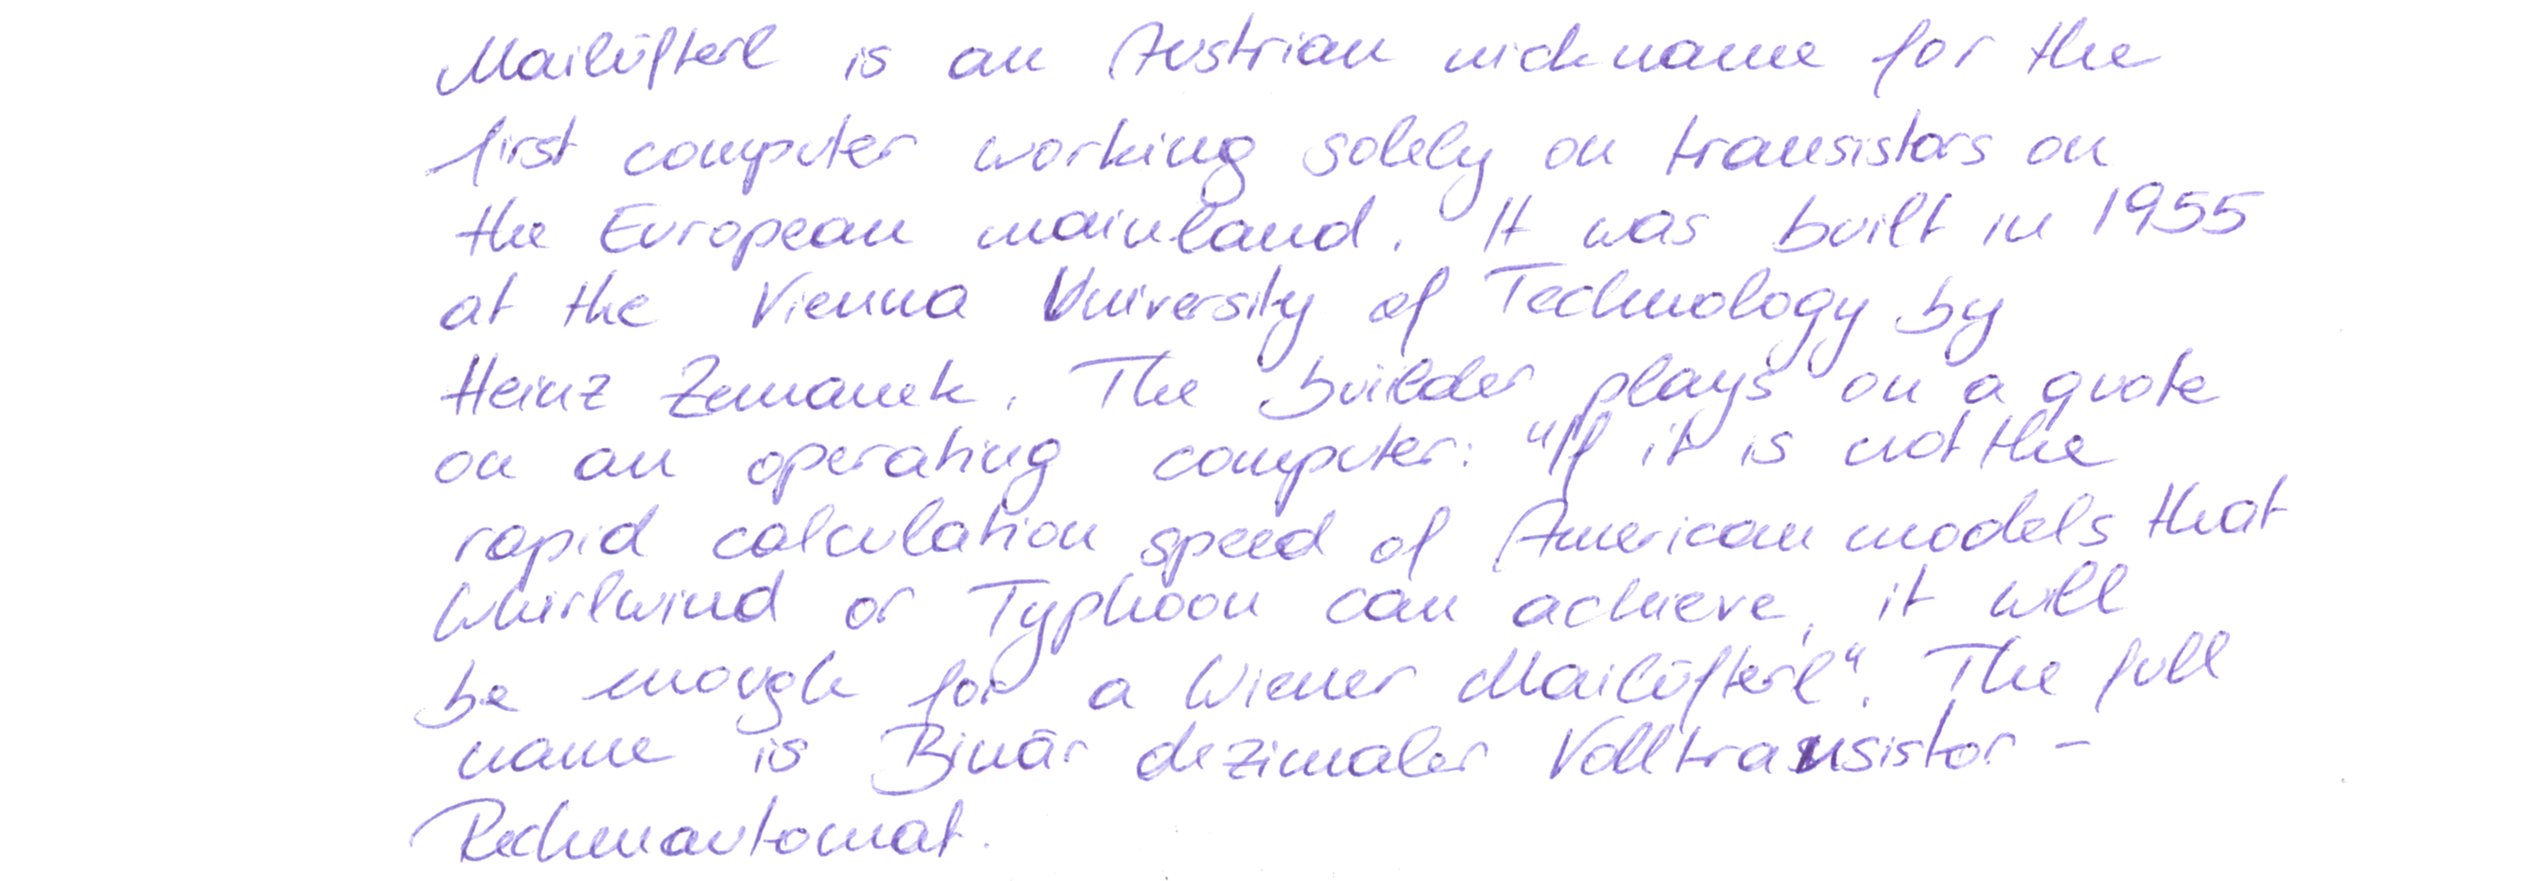 Mailüfterl is an Austrian nickname for the
first computer working solely on transistors on
the European mainland. It was built in 1955
at the Vienna University of Technology by
Heinz Zemanek. The builder plays on a quote
on an operating computer: "If it is not the
rapid calculation speed of American models that
Whirlwind or Typhoon can achieve, it will
be enough for a Wiener Mailüfterl". The full
name is Binär dezimaler Volltransistor -
Rechenautomat.